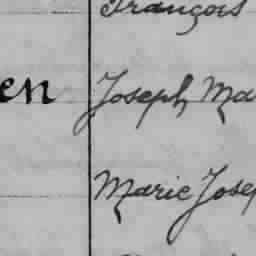 François
en Joseph Ma
Marie Josep